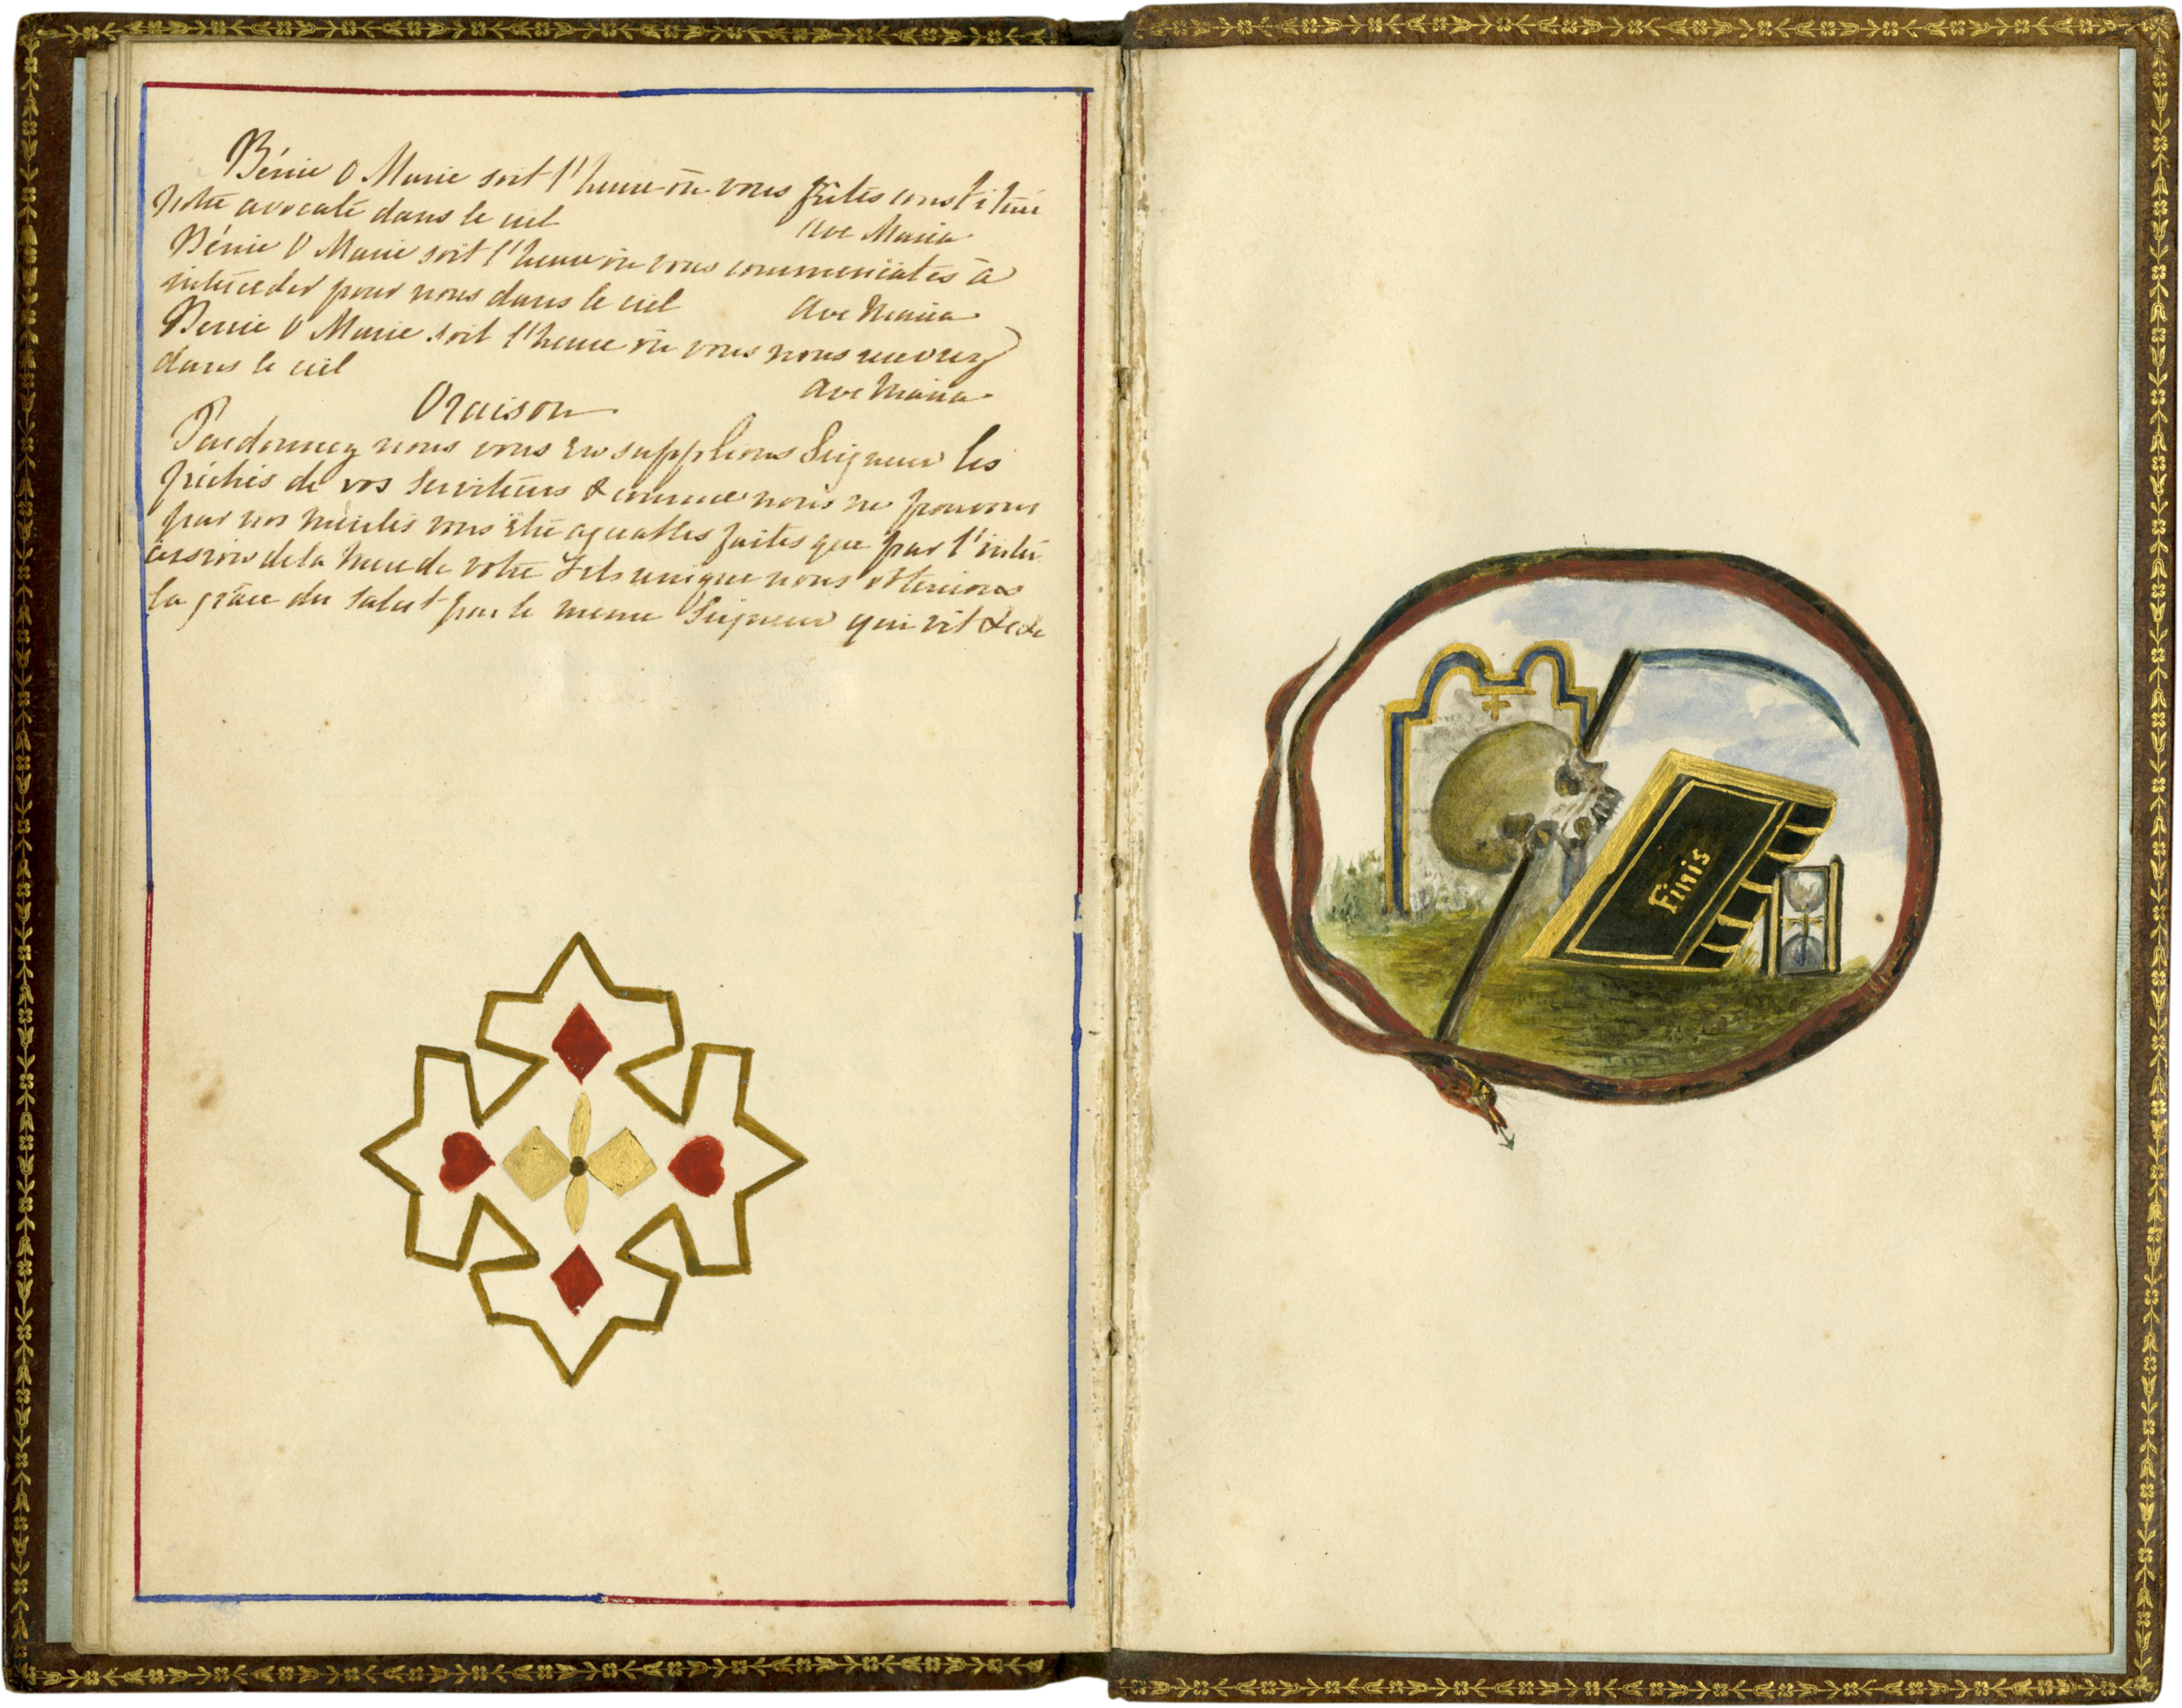 Bénie O Marie soit l'heure où vous fûtes constituée
notre avocate dans le ciel Ave Maria
Bénie O Marie soit l'heure où vous commençâtes à
intercéder pour nous dans le ciel Ave Maria
Benie O Marie soit l'heure où vous nous recevrez
dans le ciel
Ave Maria
Oraison
Pardonnez nous vous en supplions Seigneur les
péchés de vos serviteurs & comme nous ne pouvons
par nos mérites vous être agréables faites que par l'inter
cession de la Mere de votre Fils unique nous obtenions
la grâce du salut par le meme Seigneur qui vit &c &c
Finis